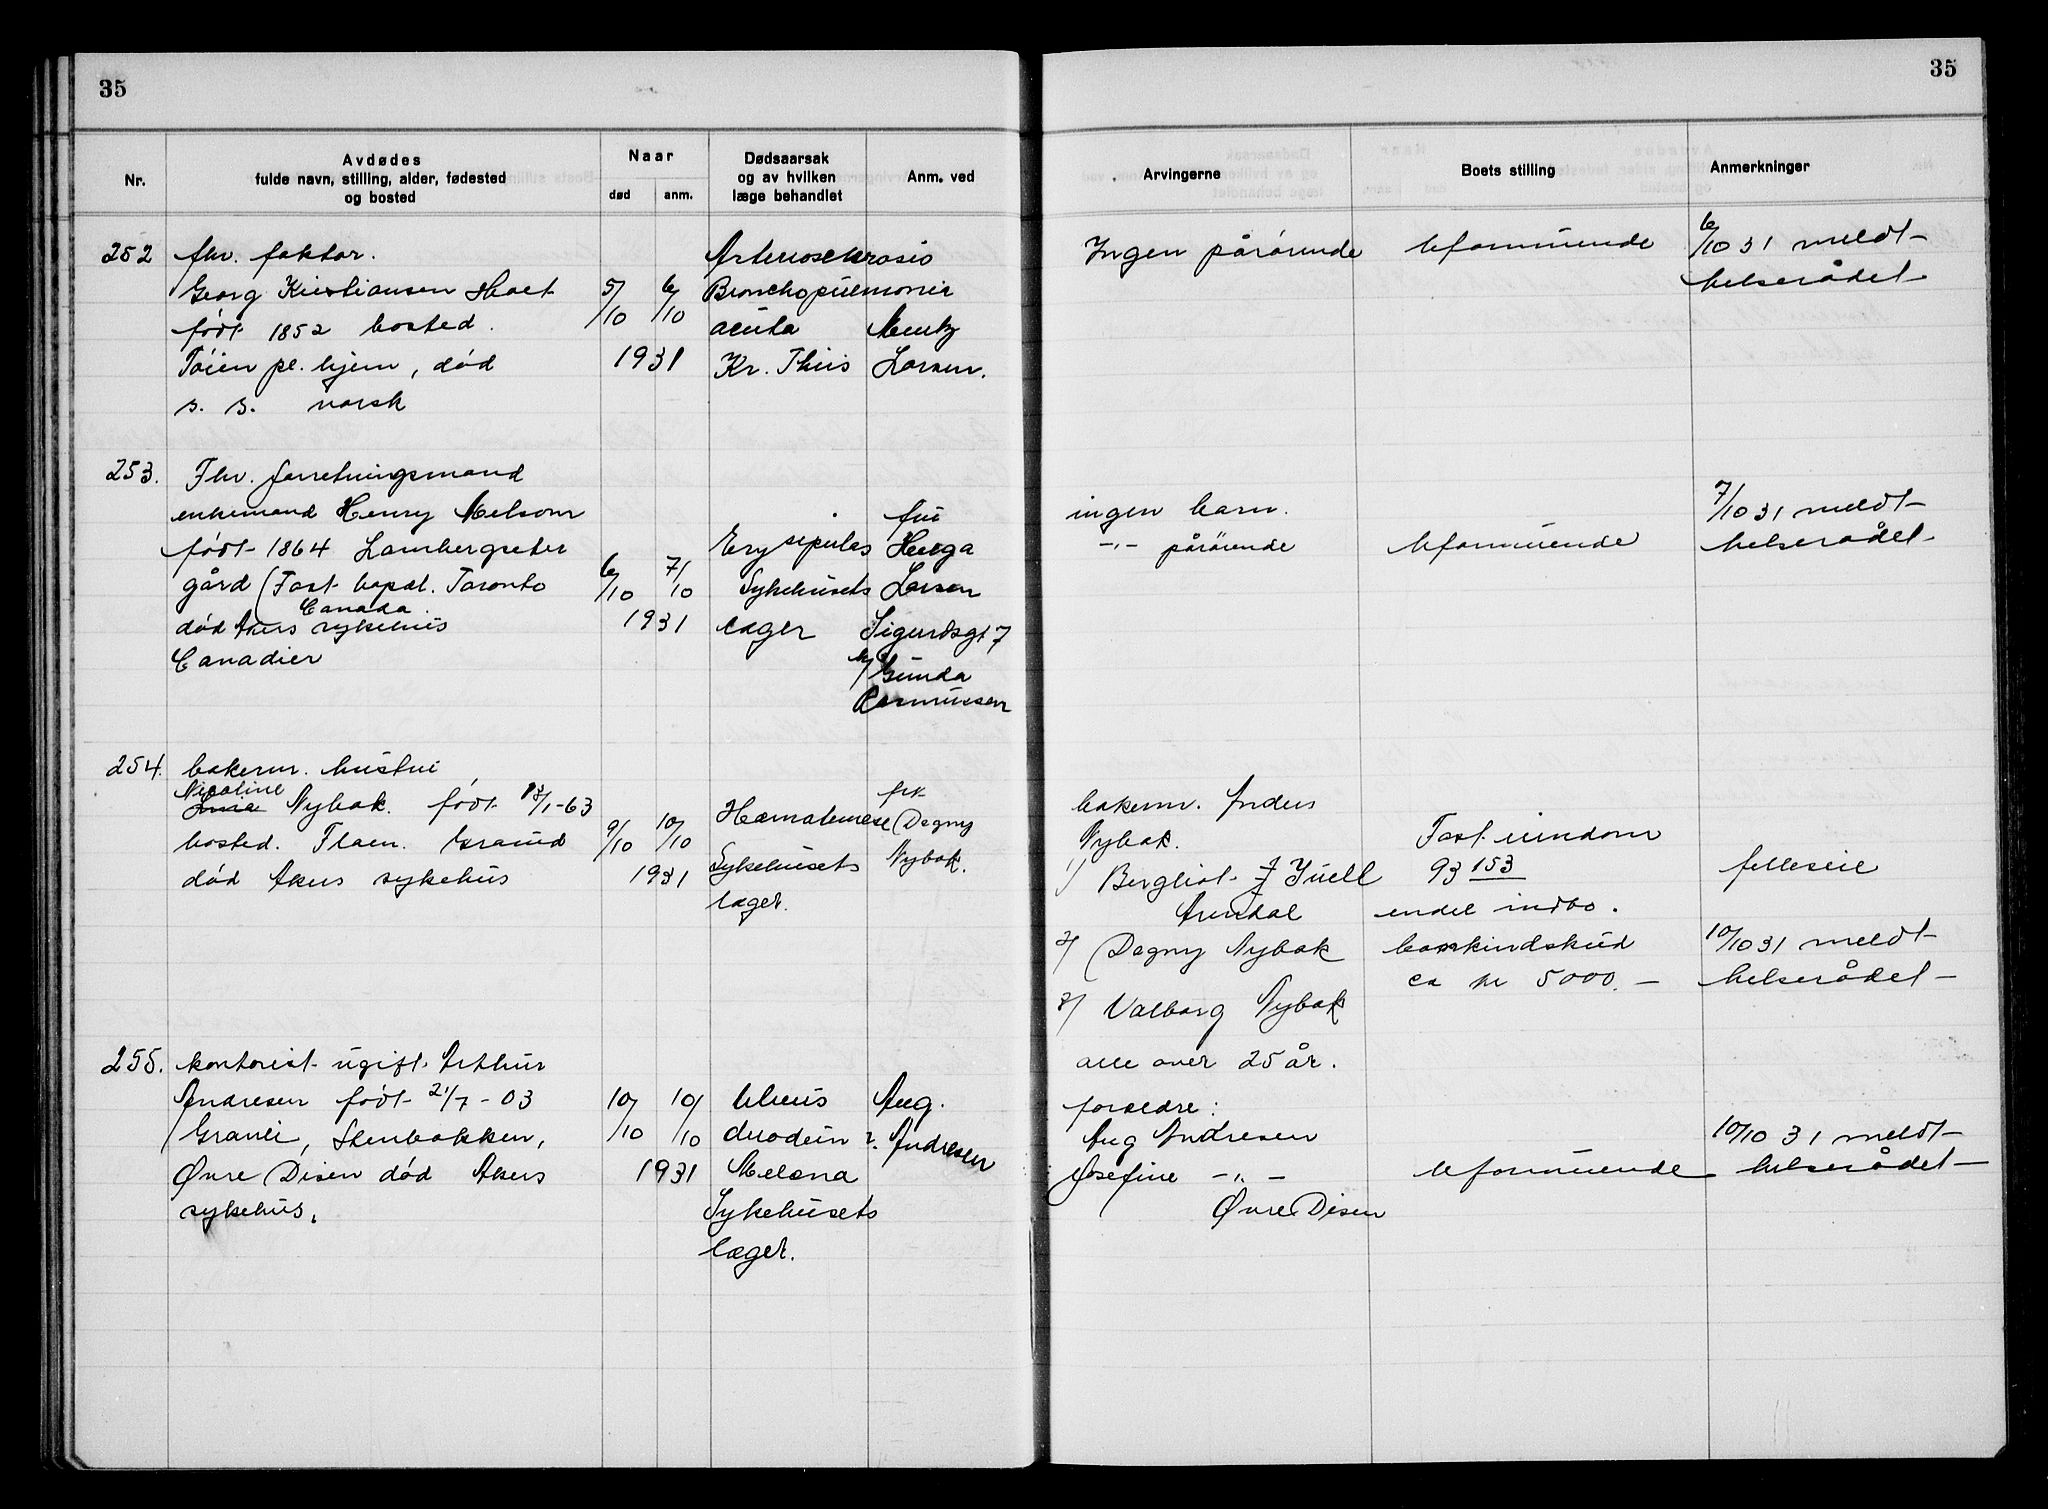 35
35
Nr.
Avdødes
fulde navn, stilling, alder, fødested
og bosted
Naar
død
anm.
Dødsaarsak
og av hvilken
læge behandlet
Anm. ved
Arvingerne
Boets stilling
Anmerkninger
252 fhv. faktor.
Georg Kristiansen
født 1852 bosted.
Tøien pl. hjem, død
s. s. norsk
5/10 6/10
1931
Arteriosclerosis
Bronchopneumonia
acuta
Kr. Thiis
Mentz
Larsen.
Ingen pårørende
Uformuende
6/10 31 meldt
helserådet
253. Fhv. forretningsmand
enkemand Henry Melsom
født 1864 Lambergseter
gård (Fast bopæl. Toronto
Canada.
død Akers sykehus
Canadier
6/10 7/10
1931
Erysipelas
Sykehusets
læger
fru
Helga
Larsen
Sigurdsgt 7
v/ Gunda
Rasmussen
ingen barn.
-"- pårørende
Uformuende
7/10 31 meldt
helserådet
254. bakerm. hustru
Nicoline
Nybak. født 13/1-63
bosted. Flaen. Grorud
død Akers sykehus
9/10 10/10
1931
Hæmatemese
Sykehusets
læger.
frk
Dagny
Nybak.
bakerm. Anders
Nybak.
1/ Bergliot f Juell
Arendal
2/ Dagny Nybak
3/ Valborg Nybak
alle over 25 år.
Fast eiendom
93 153
endel indbo.
bankindskud
ca kr 5000.-
felleseie
10/10 31 meldt
helserådet
255. kontorist ugift Arthur
Andresen født 21/7-03
Grønli, Stenbakken,
Øvre Disen død Akers
sykehus.
10/10 10/10
1931
Ulcus
duodeni
Melena
Sykehusets
læger.
Aug.
Andresen
foreldre:
Aug Andresen
Josefine -"-
Øvre Disen
Uformuende
10/10 31 meldt
helserådet